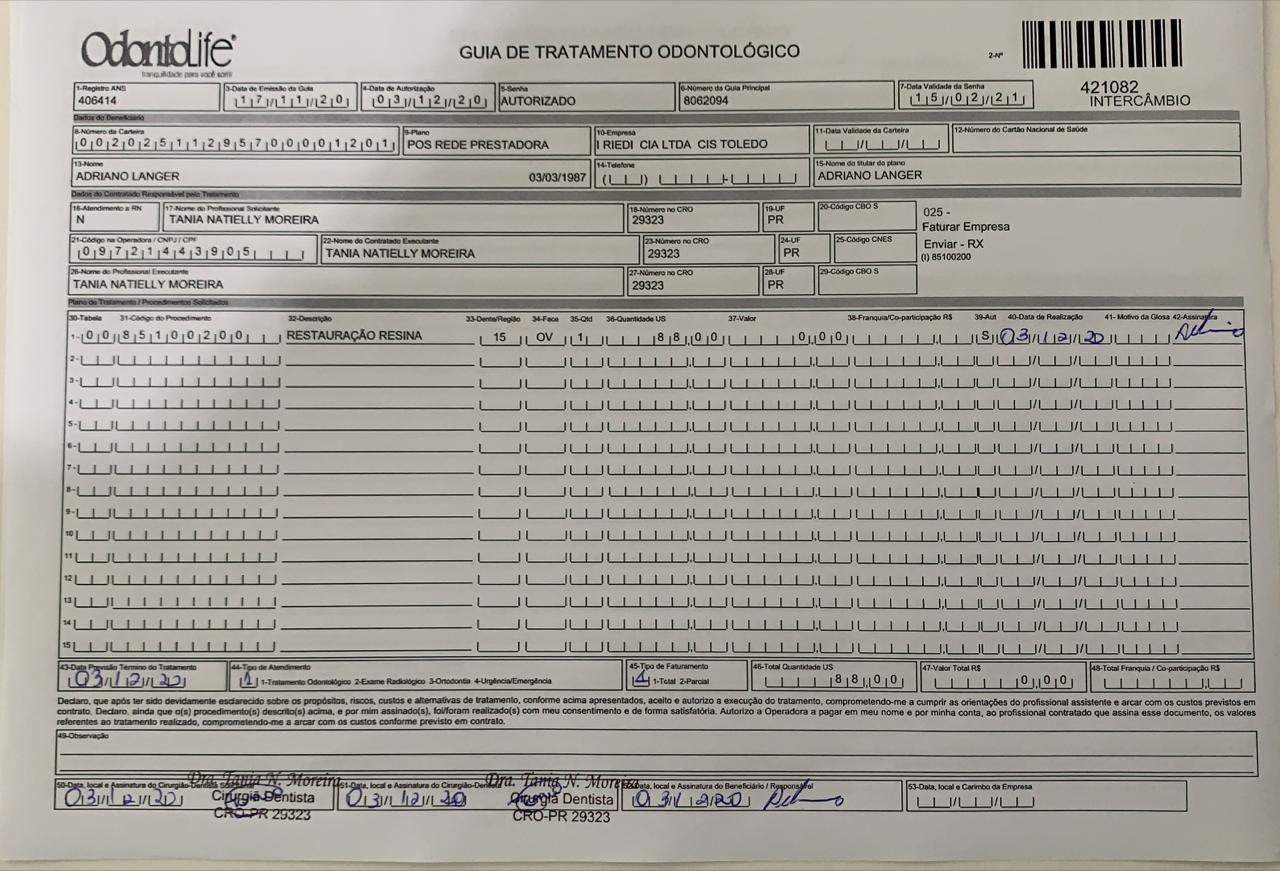 OdontoLife
tranquilidade para você sorrir
GUIA DE TRATAMENTO ODONTOLÓGICO
2-Nº
421082
INTERCÂMBIO
1-Registro ANS 3-Data de Emissão da Guia 4-Data de Autorização 5-Senha 6-Número da Guia Principal 7-Data Validade da Senha
406414 17/11/20 03/12/20 AUTORIZADO 8062094 15/02/21
Dados do Beneficiário
8-Número da Carteira 9-Plano 10-Empresa 11-Data Validade da Carteira 12-Número do Cartão Nacional de Saúde
00202511295700001201 POS REDE PRESTADORA I RIEDI CIA LTDA CIS TOLEDO
13-Nome 14-Telefone 15-Nome do titular do plano
ADRIANO LANGER 03/03/1987 ADRIANO LANGER
Dados do Contratado Responsável pelo Tratamento
16-Atendimento a RN 17-Nome do Profissional Solicitante 18-Número no CRO 19-UF 20-Código CBO S
N TANIA NATIELLY MOREIRA 29323 PR
025 -
Faturar Empresa
Enviar - RX
(I) 85100200
21-Código na Operadora / CNPJ / CPF 22-Nome do Contratado Executante 23-Número no CRO 24-UF 25-Código CNES
09721443905 TANIA NATIELLY MOREIRA 29323 PR
26-Nome do Profissional Executante 27-Número no CRO 28-UF 29-Código CBO S
TANIA NATIELLY MOREIRA 29323 PR
Plano de Tratamento / Procedimentos Solicitados
30-Tabela 31-Código do Procedimento 32-Descrição 33-Dente/Região 34-Face 35-Qtd 36-Quantidade US 37-Valor 38-Franquia/Co-participação R$ 39-Aut 40-Data de Realização 41- Motivo da Glosa 42-Assinatura
1- 00 85100200 RESTAURAÇÃO RESINA 15 OV 1 88,00 0,00 S 03/12/20
2-
3-
4-
5-
6-
7-
8-
9-
10
11
12
13
14
15
43-Data Previsão Término do Tratamento 44-Tipo de Atendimento 45-Tipo de Faturamento 46-Total Quantidade US 47-Valor Total R$ 48-Total Franquia / Co-participação R$
03/12/20 1 1-Tratamento Odontológico 2-Exame Radiológico 3-Ortodontia 4-Urgência/Emergência 1-Total 2-Parcial 88,00 0,00
Declaro, que após ter sido devidamente esclarecido sobre os propósitos, riscos, custos e alternativas de tratamento, conforme acima apresentados, aceito e autorizo a execução do tratamento, comprometendo-me a cumprir as orientações do profissional assistente e arcar com os custos previstos em
contrato. Declaro, ainda que o(s) procedimento(s) descrito(s) acima, e por mim assinado(s), foi/foram realizado(s) com meu consentimento e de forma satisfatória. Autorizo a Operadora a pagar em meu nome e por minha conta, ao profissional contratado que assina esse documento, os valores
referentes ao tratamento realizado, comprometendo-me a arcar com os custos conforme previsto em contrato.
49-Observação
50-Data, local e Assinatura do Cirurgião-Dentista 51-Data, local e Assinatura do Cirurgião-Dentista 52-Data, local e Assinatura do Beneficiário / Responsável 53-Data, local e Carimbo da Empresa
03/12/20 03/12/20 03/12/20
Dra. Tania N. Moreira Dra. Tania N. Moreira
Cirurgiã Dentista Cirurgiã Dentista
CRO-PR 29323 CRO-PR 29323